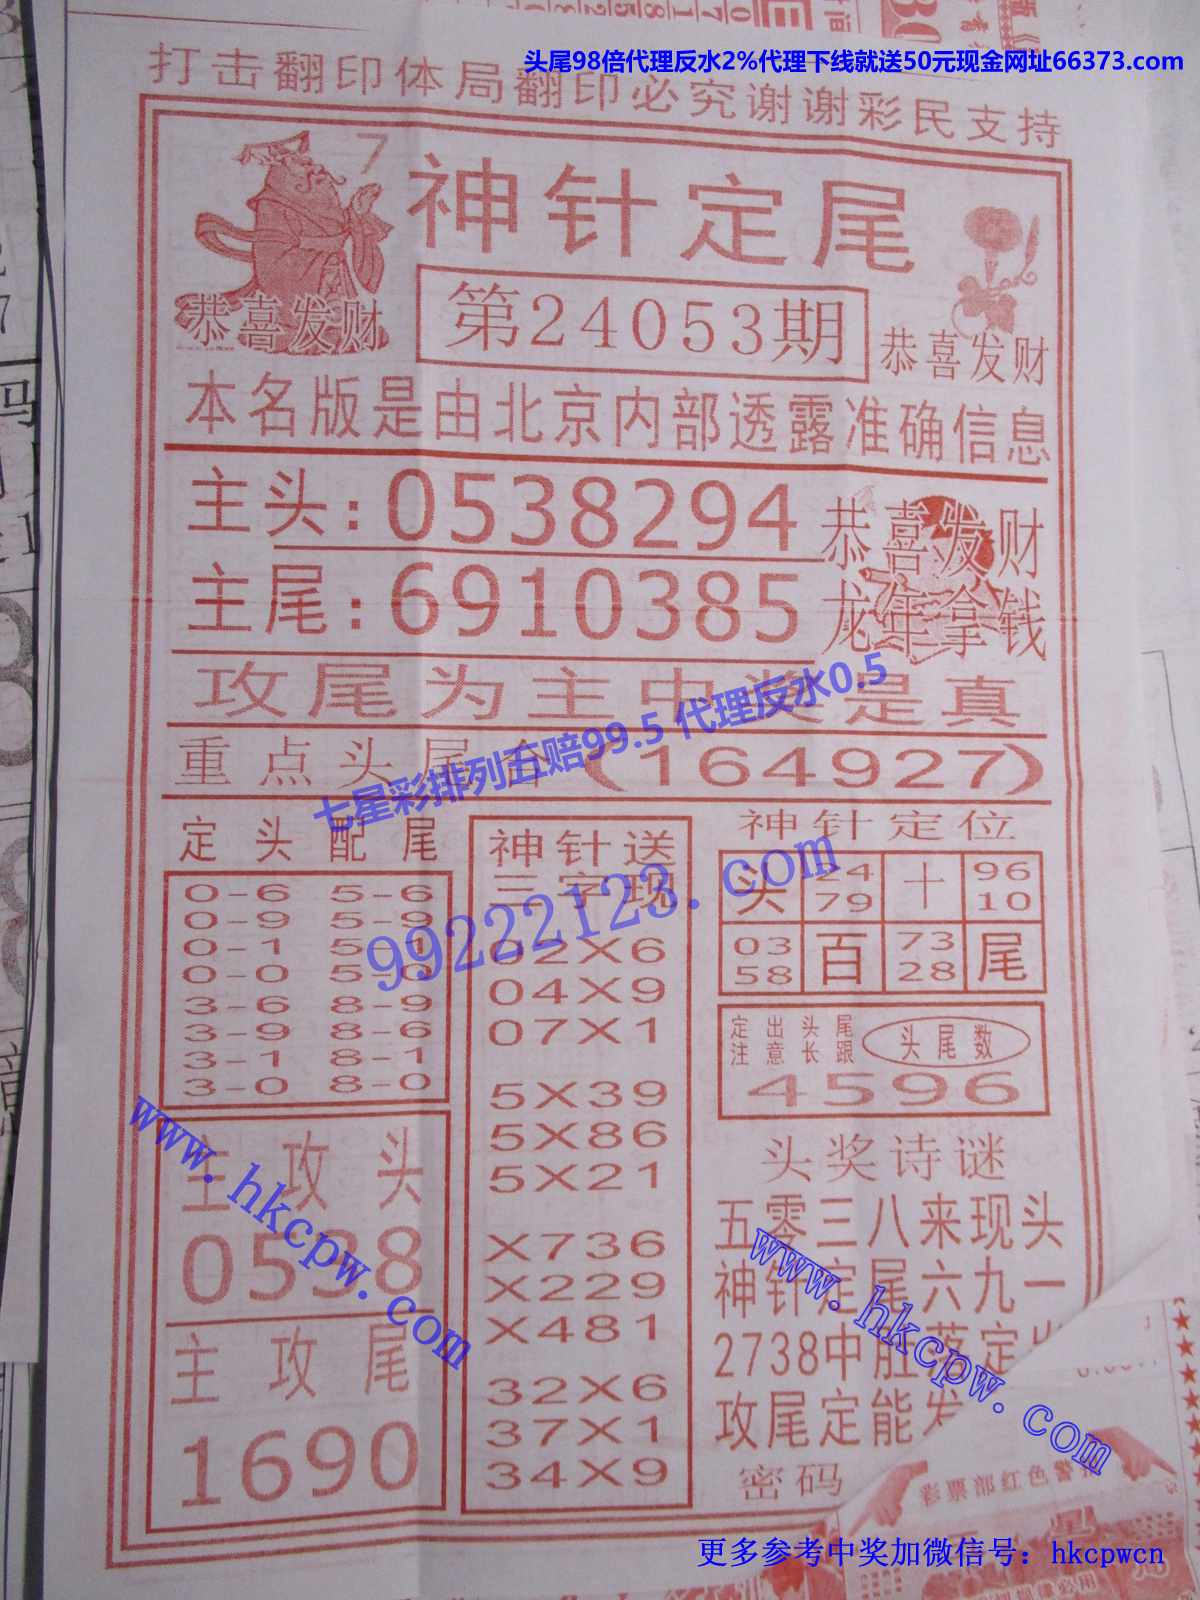 头尾98倍代理反水2%代理下线就送50元现金网址66373.com
打击翻印体局翻印必究谢谢彩民支持
7
神针定尾
第24053期
恭喜发财
恭喜发财
本名版是由北京内部透露准确信息
主头:0538294
主尾:6910385
恭喜发财
龙年拿钱
攻尾为主中奖是真
重点头尾合(164927)
七星彩排列五赔99.5 代理反水0.5
定头配尾
0-6 5-6
0-9 5-9
0-1 5-1
0-0 5-0
3-6 8-9
3-9 8-6
3-1 8-1
3-0 8-0
主攻头
0538
主攻尾
1690
神针送
三字现
02X6
04X9
07X1
5X39
5X86
5X21
X736
X229
X481
32X6
37X1
34X9
99222123.com
神针定位
头 24 十 96
79 10
03 百 73 尾
58 28
定出头尾
注意长跟
头尾数
4596
头奖诗谜
五零三八来现头
神针定尾六九一
2738中肚落定
攻尾定能发
密码
www.hkcpw.com
www.hkcpw.com
彩票部红色警
更多参考中奖加微信号：hkcpwcn